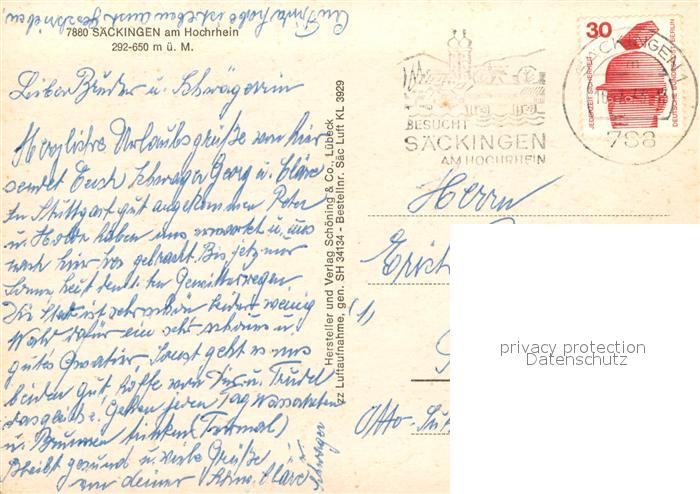 An Frida habe ich eben auch geschrieben,
7880 SÄCKINGEN am Hochrhein
292-650 m ü. M.
Lieber Bruder u. Schwägerin
Herzliche Urlaubsgrüße von hier
sendet Euch Schwager Georg u. Cläre
In Stuttgart gut angekommen Peter
u. haben uns erwartet u. uns
nach hier her gebracht. Bis jetzt nur
Sonne, heut den ersten Gewitterregen.
Die Stadt ist sehr schön leider wenig
Wald dafür ein sehr schönes u.
gutes Quatier. Sonst geht es uns
beiden gut, hoffe von Dir u. Trudel
dasgleiche. Gehen jeden Tag
u. Brunnen trinken (Termal)
Bleibt gesund u. viele Grüße
von deiner Schw. Cläre
Schwager
Hersteller und Verlag Schöning & Co., Lübeck
zz Luftaufnahme, gen. SH 34134 - Bestellnr. Säc Luft KL 3929
BESUCHT
SÄCKINGEN
AM HOCHRHEIN
30
JEDERZEIT SICHERHEIT
DEUTSCHE BUNDESPOST BERLIN
SÄCKINGEN
788
Herrn
Erich
(1)
Otto-
privacy protection
Datenschutz